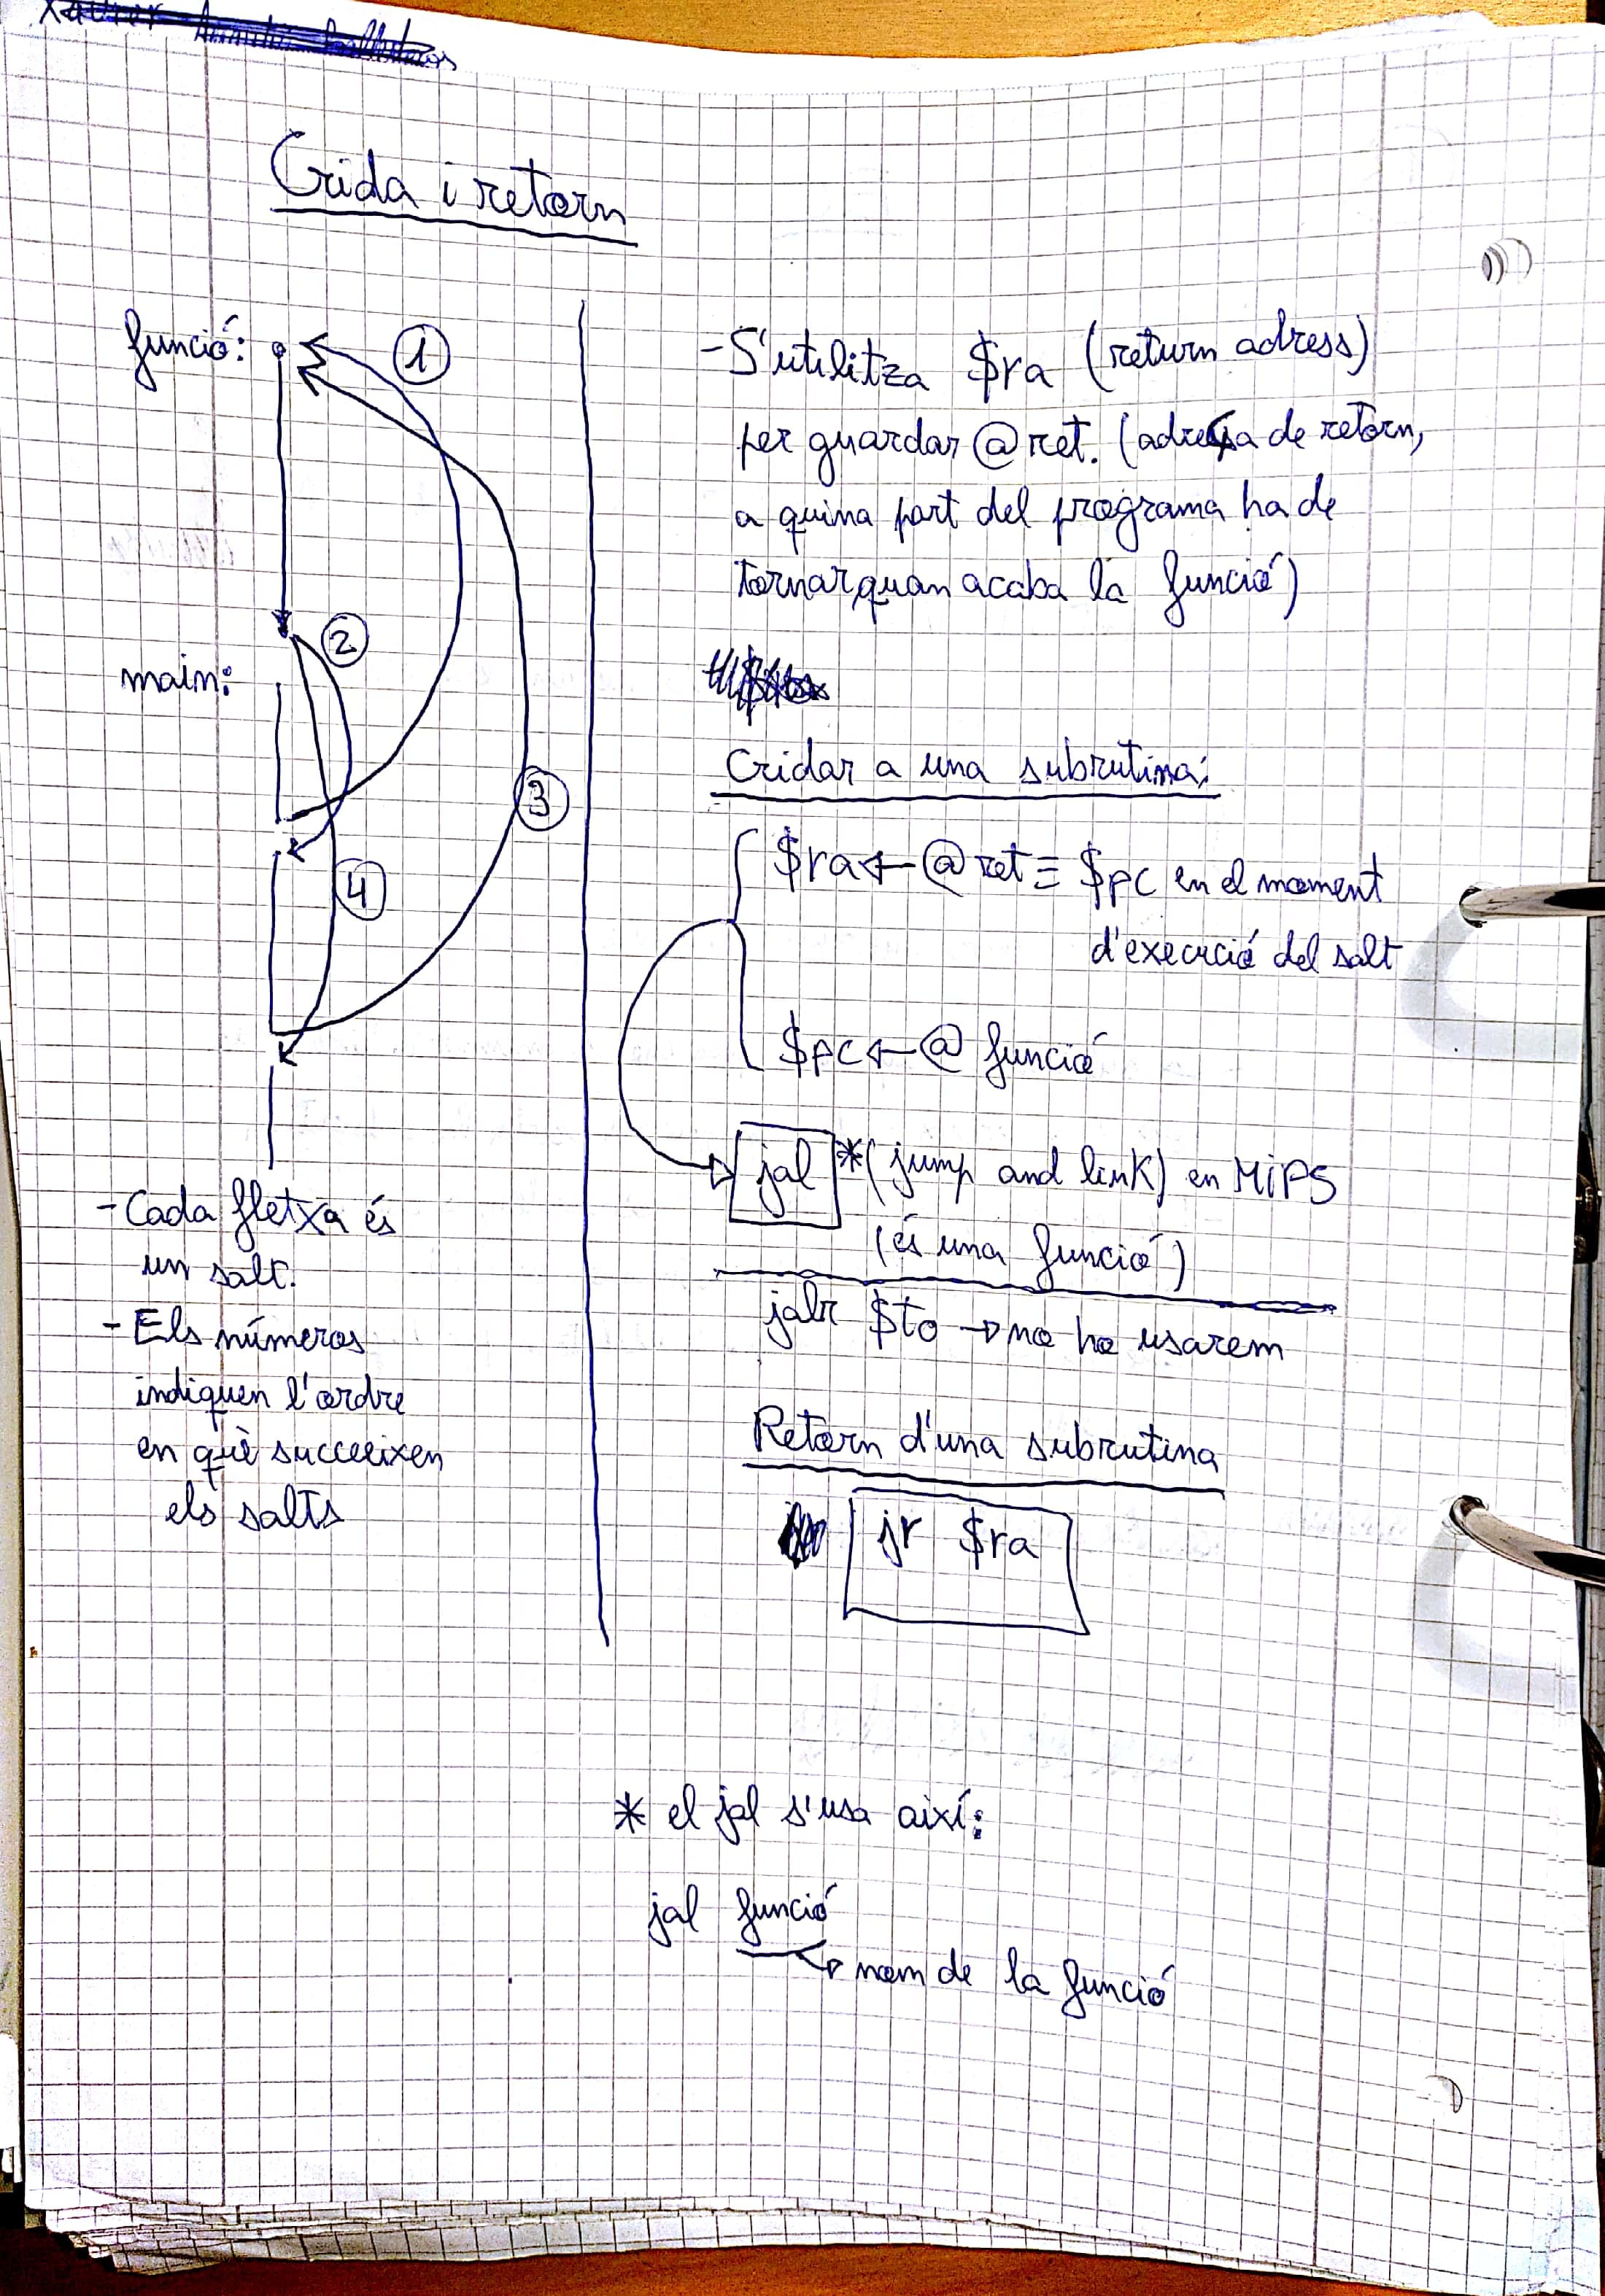 Crida i retorn
funció:
1
2
main:
3
4
- Cada fletxa és
un salt.
- Els números
indiquen l'ordre
en què succeeixen
els salts
- S'utilitza $ra (return adress)
per guardar @ret. (adreça de retorn,
a quina part del programa ha de
tornar quan acaba la funció)
Cridar a una subrutina:
$ra ← @ret ≡ $pc en el moment
d'execució del salt
$pc ← @ funció
jal *(jump and link) en MiPS
(és una funció)
jalr $t0 → no ho usarem
Retorn d'una subrutina
jr $ra
* el jal s'usa així:
jal funció
↳ nom de la funció